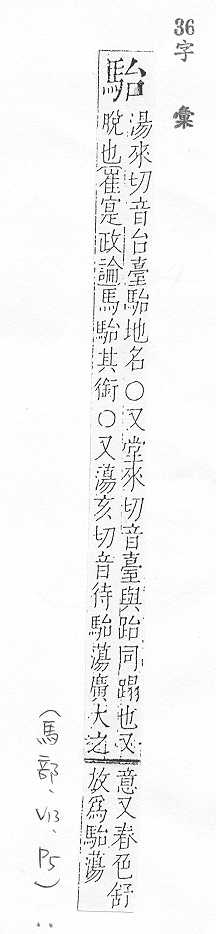 36字彙
駘
湯來切音台臺駘地名○又堂來切音臺與跆同蹋也又
脫也崔寔政論馬駘其銜○又蕩亥切音待駘蕩廣大之
意又春色舒
放爲駘蕩
(馬部、V13、P5)